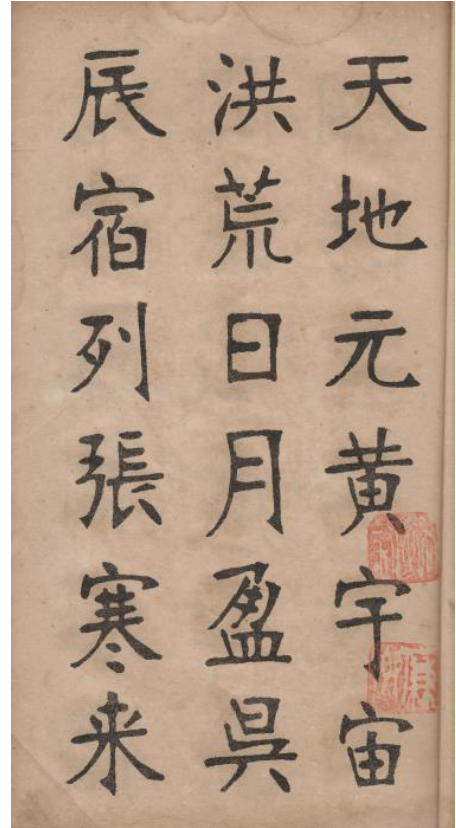 天地元黄宇宙
洪荒日月盈昃
辰宿列張寒来